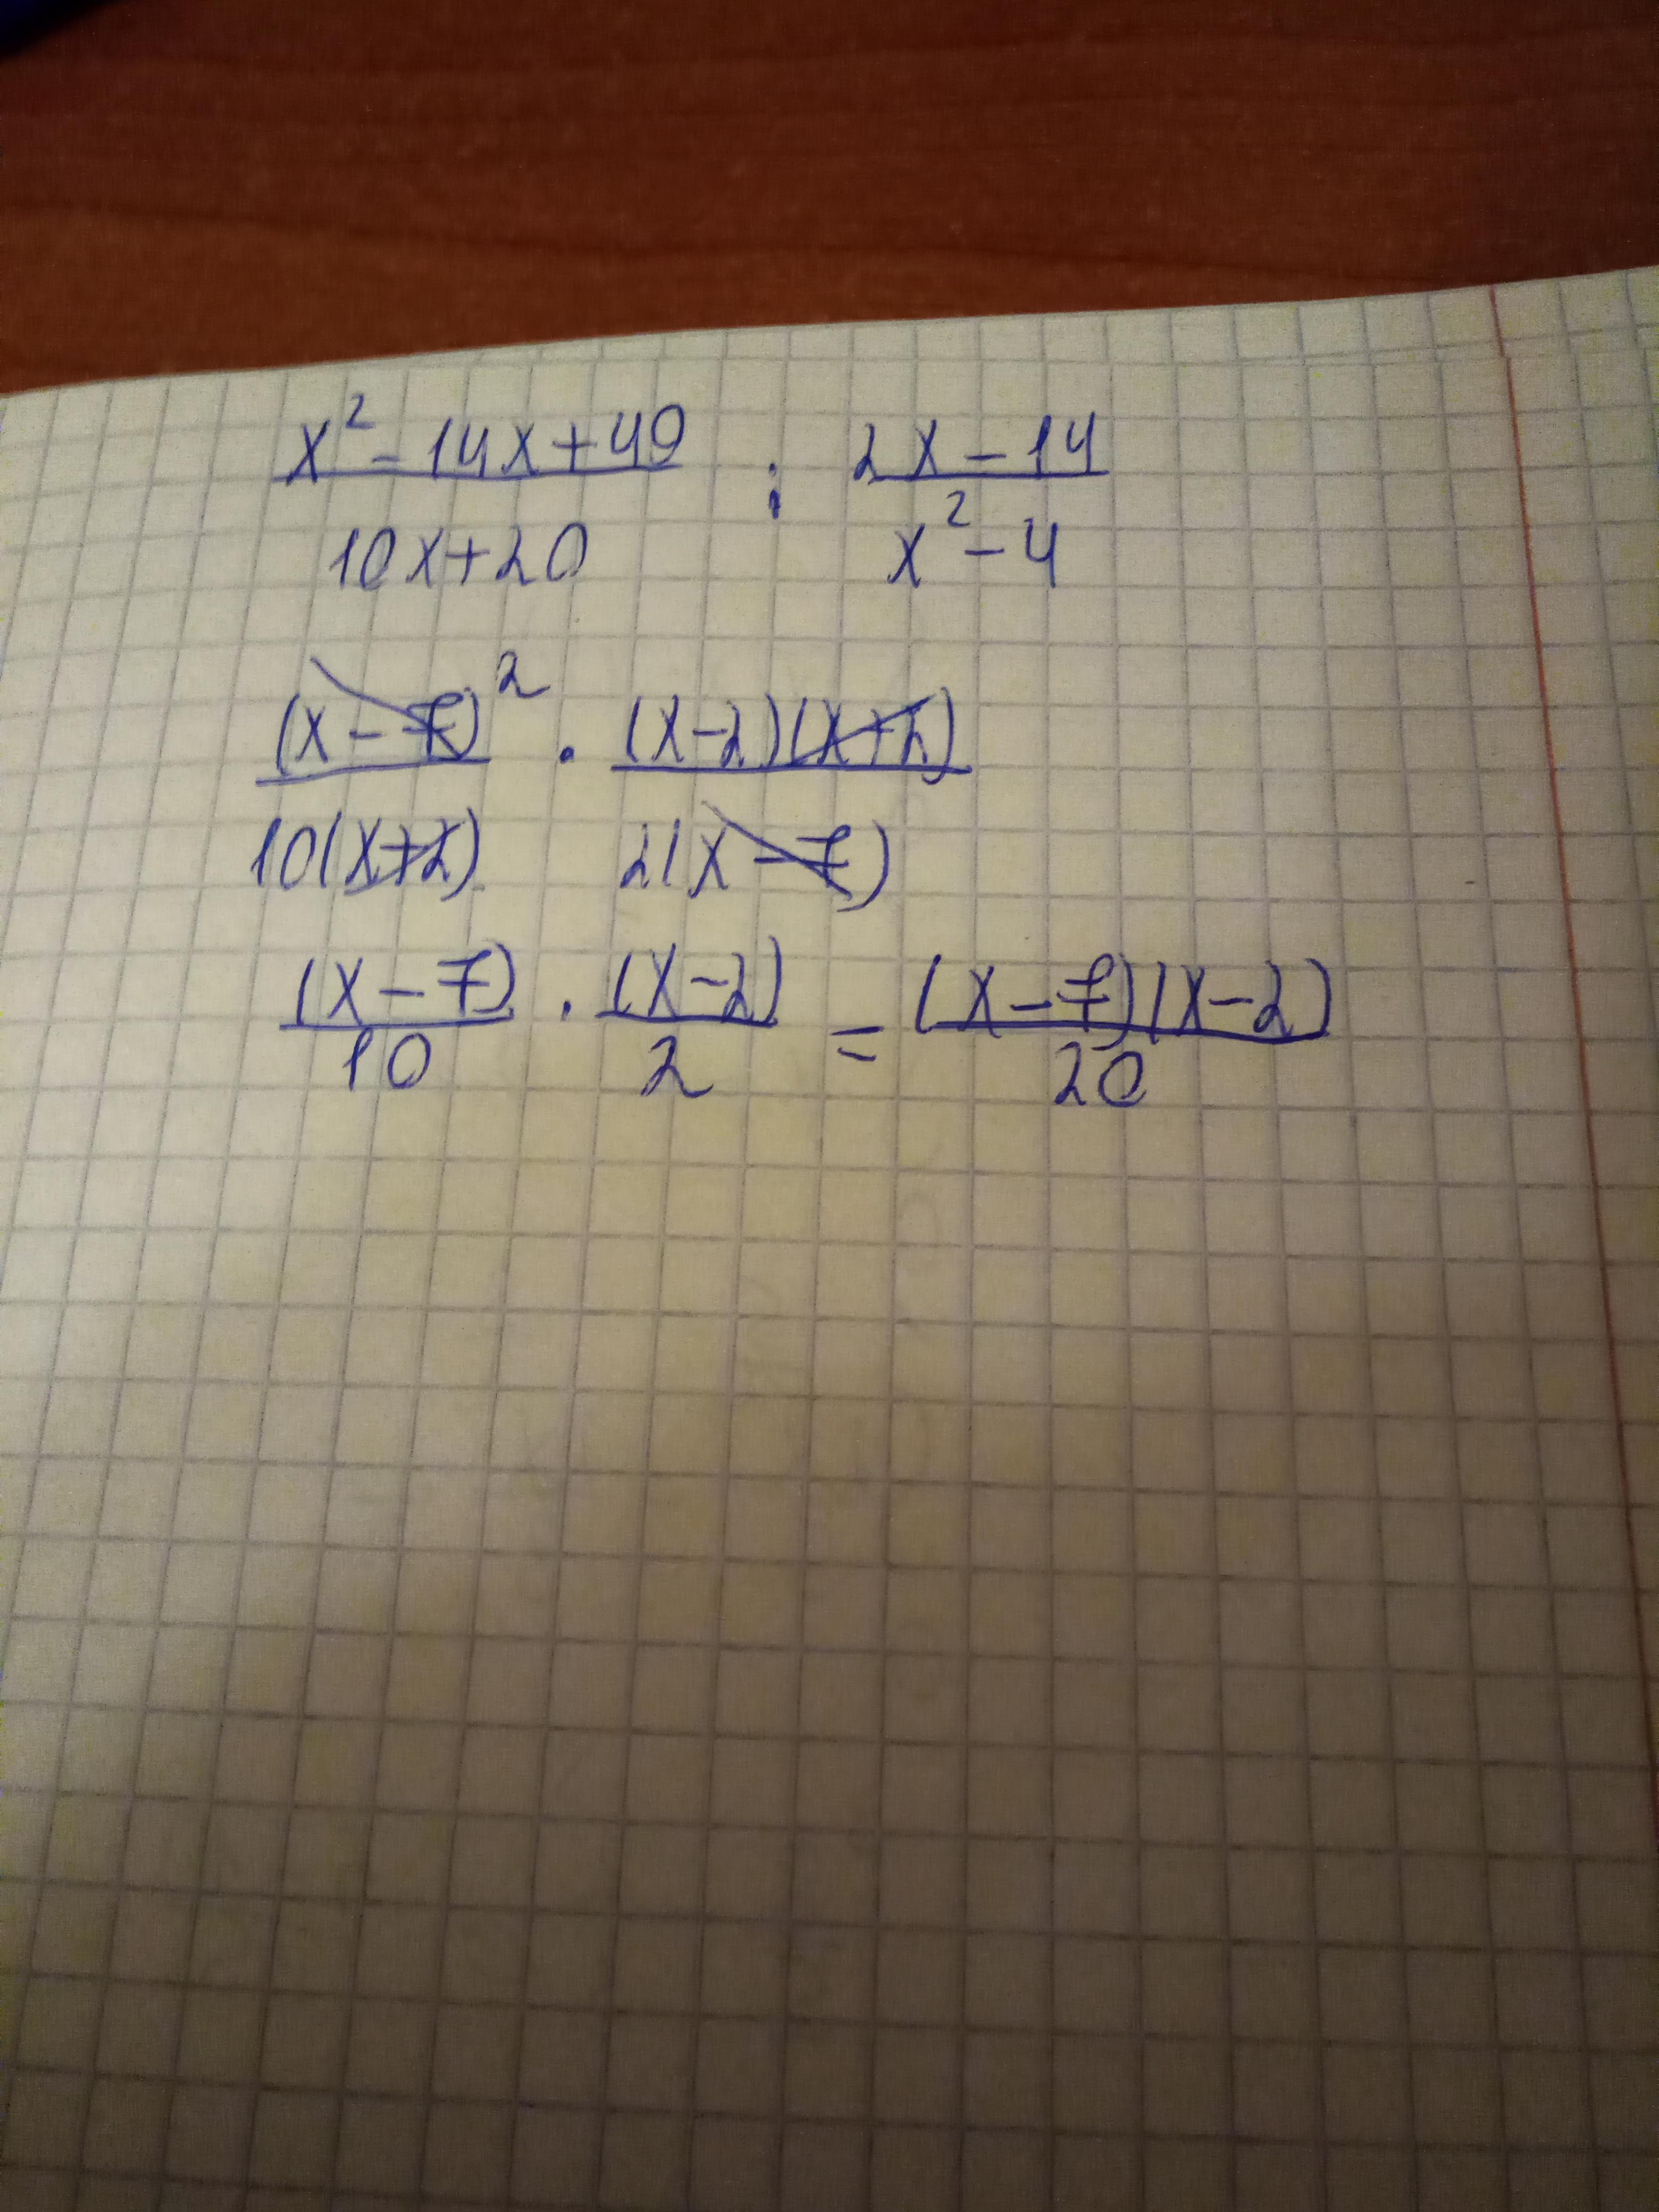 x² - 14x + 49 / 10x + 20 : 2x - 14 / x² - 4
(x - 7)² / 10(x+2) · (x-2)(x+2) / 2(x - 7)
(x - 7) / 10 · (x-2) / 2 = (x - 7)(x-2) / 20